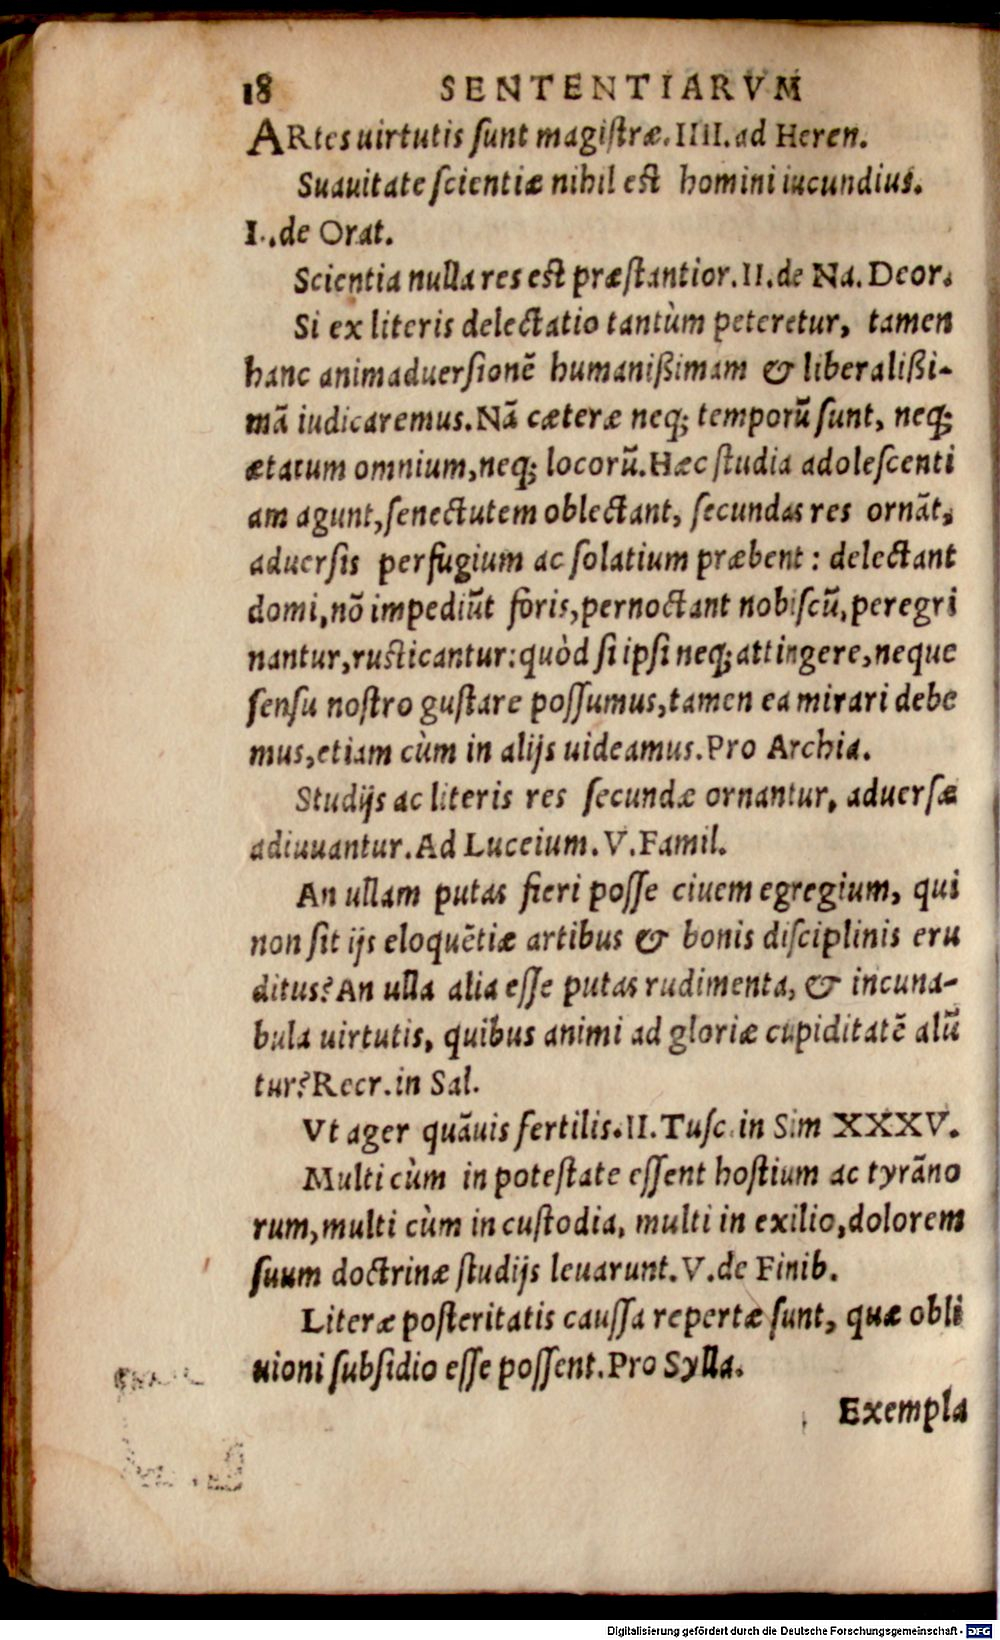 18 SENTENTIARVM
ARtes uirtutis sunt magistræ. IIII. ad Heren.
Suauitate scientiæ nihil est homini iucundius.
I. de Orat.
Scientia nulla res est præstantior. II. de Na. Deor.
Si ex literis delectatio tantùm peteretur, tamen
hanc animaduersionē humanißimam & liberalißi-
mā iudicaremus. Nā cæteræ neq; temporū sunt, neq;
ætatum omnium, neq; locorū. Hæc studia adolescenti
am agunt, senectutem oblectant, secundas res ornāt,
aduersis perfugium ac solatium præbent: delectant
domi, nō impediūt foris, pernoctant nobiscū, peregri
nantur, rusticantur: quòd si ipsi neq; attingere, neque
sensu nostro gustare possumus, tamen ea mirari debe
mus, etiam cùm in alijs uideamus. Pro Archia.
Studijs ac literis res secundæ ornantur, aduersæ
adiuuantur. Ad Luceium. V. Famil.
An ullam putas fieri posse ciuem egregium, qui
non sit ijs eloquētiæ artibus & bonis disciplinis eru
ditus? An ulla alia esse putas rudimenta, & incuna-
bula uirtutis, quibus animi ad gloriæ cupiditatē alū
tur? Recr. in Sal.
Vt ager quāuis fertilis. II. Tusc. in Sim XXXV.
Multi cùm in potestate essent hostium ac tyrāno
rum, multi cùm in custodia, multi in exilio, dolorem
suum doctrinæ studijs leuarunt. V. de Finib.
Literæ posteritatis caussa repertæ sunt, quæ obli
uioni subsidio esse possent. Pro Sylla.
Exempla
Digitalisierung gefördert durch die Deutsche Forschungsgemeinschaft - DFG